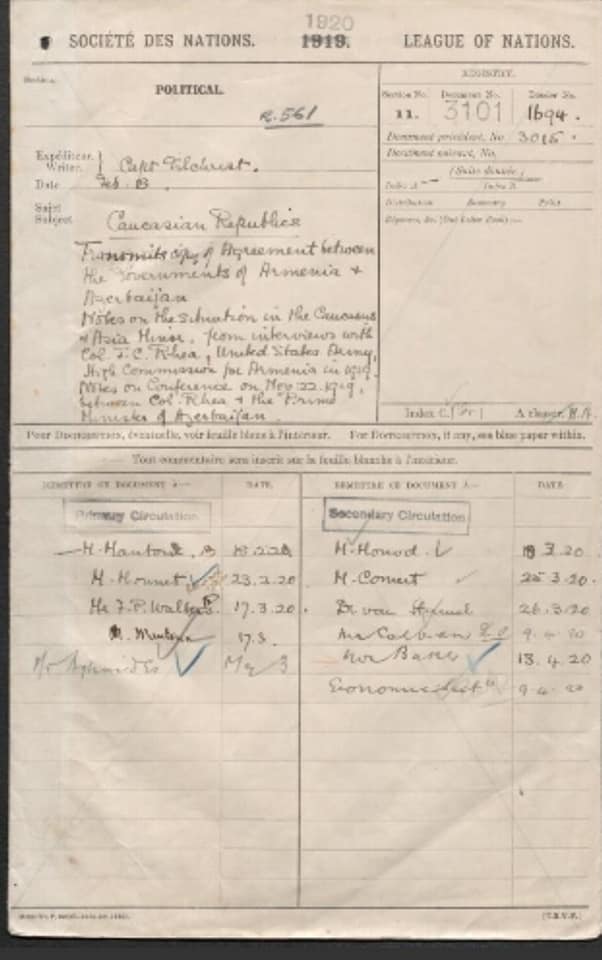 1920
SOCIÉTÉ DES NATIONS. 1919. LEAGUE OF NATIONS.
Section.
POLITICAL.
R.561
REGISTRY.
Section No. Document No. Dossier No.
11. 3101 1694.
Document précédent, No. 3015.
Document suivant, No.
Expéditeur. Writer. Capt Gilchrist.
Date Feb. 13.
Sujet
Subject
Caucasian Republics
Transmits copy of Agreement between
the Governments of Armenia &
Azerbaijan
Notes on the situation in the Caucasus
& Asia Minor, from interviews with
Col. J.C. Rhea, United States Army,
High Commission for Armenia in 1919.
Notes on Conference on Nov. 22. 1919,
between Col. Rhea & the Prime
Minister of Azerbaijan.
Index C.
Pour DOCUMENTS, éventuels, voir feuille blanche à l'intérieur. For DOCUMENTS, if any, see blue paper within.
Tout commentaire sera inscrit sur la feuille blanche à l'intérieur.
REMETTRE CE DOCUMENT À— DATE. REMETTRE CE DOCUMENT À— DATE
Primary Circulation Secondary Circulation
M. Mantoux. 2.20 M. Monod. 3.20
M. Monnet 23.2.20 M. Comert 25.3.20.
Mr F.P. Walters. 17.3.20. Dr van 26.3.20
17.3. Mr 9.4.20
Baker 13.4.20
Economic Sectn 9.4.20